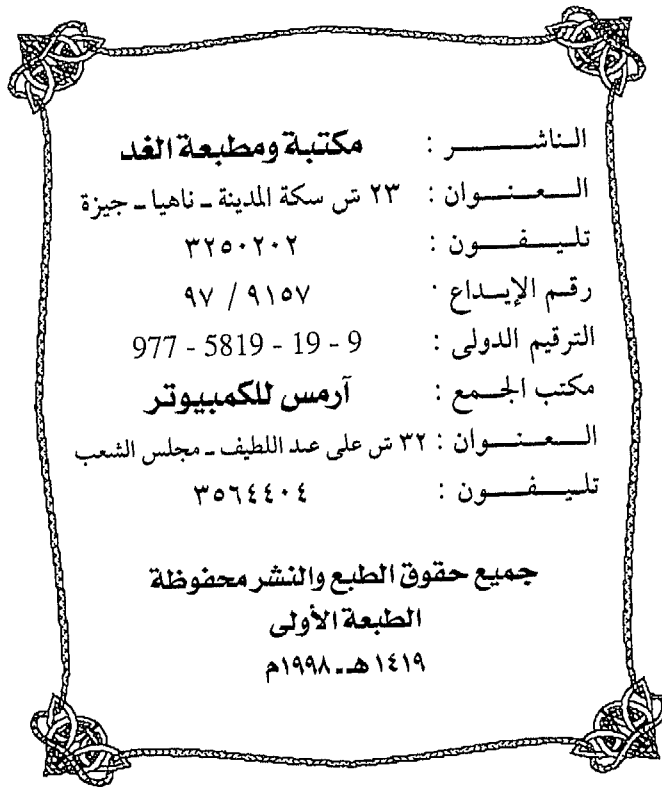 الناشر : مكتبة ومطبعة الغد
العنوان : ٢٣ ش سكة المدينة ـ ناهيا ـ جيزة
تليفون : ٣٢٥٠٢٠٢
رقم الإيداع : ٩١٥٧ / ٩٧
الترقيم الدولى : 977 - 5819 - 19 - 9
مكتب الجمع : آرمس للكمبيوتر
العنوان : ٣٢ ش على عبد اللطيف ـ مجلس الشعب
تليفون : ٣٥٦٤٤٠٤
جميع حقوق الطبع والنشر محفوظة
الطبعة الأولى
١٤١٩ هـ ـ ١٩٩٨م